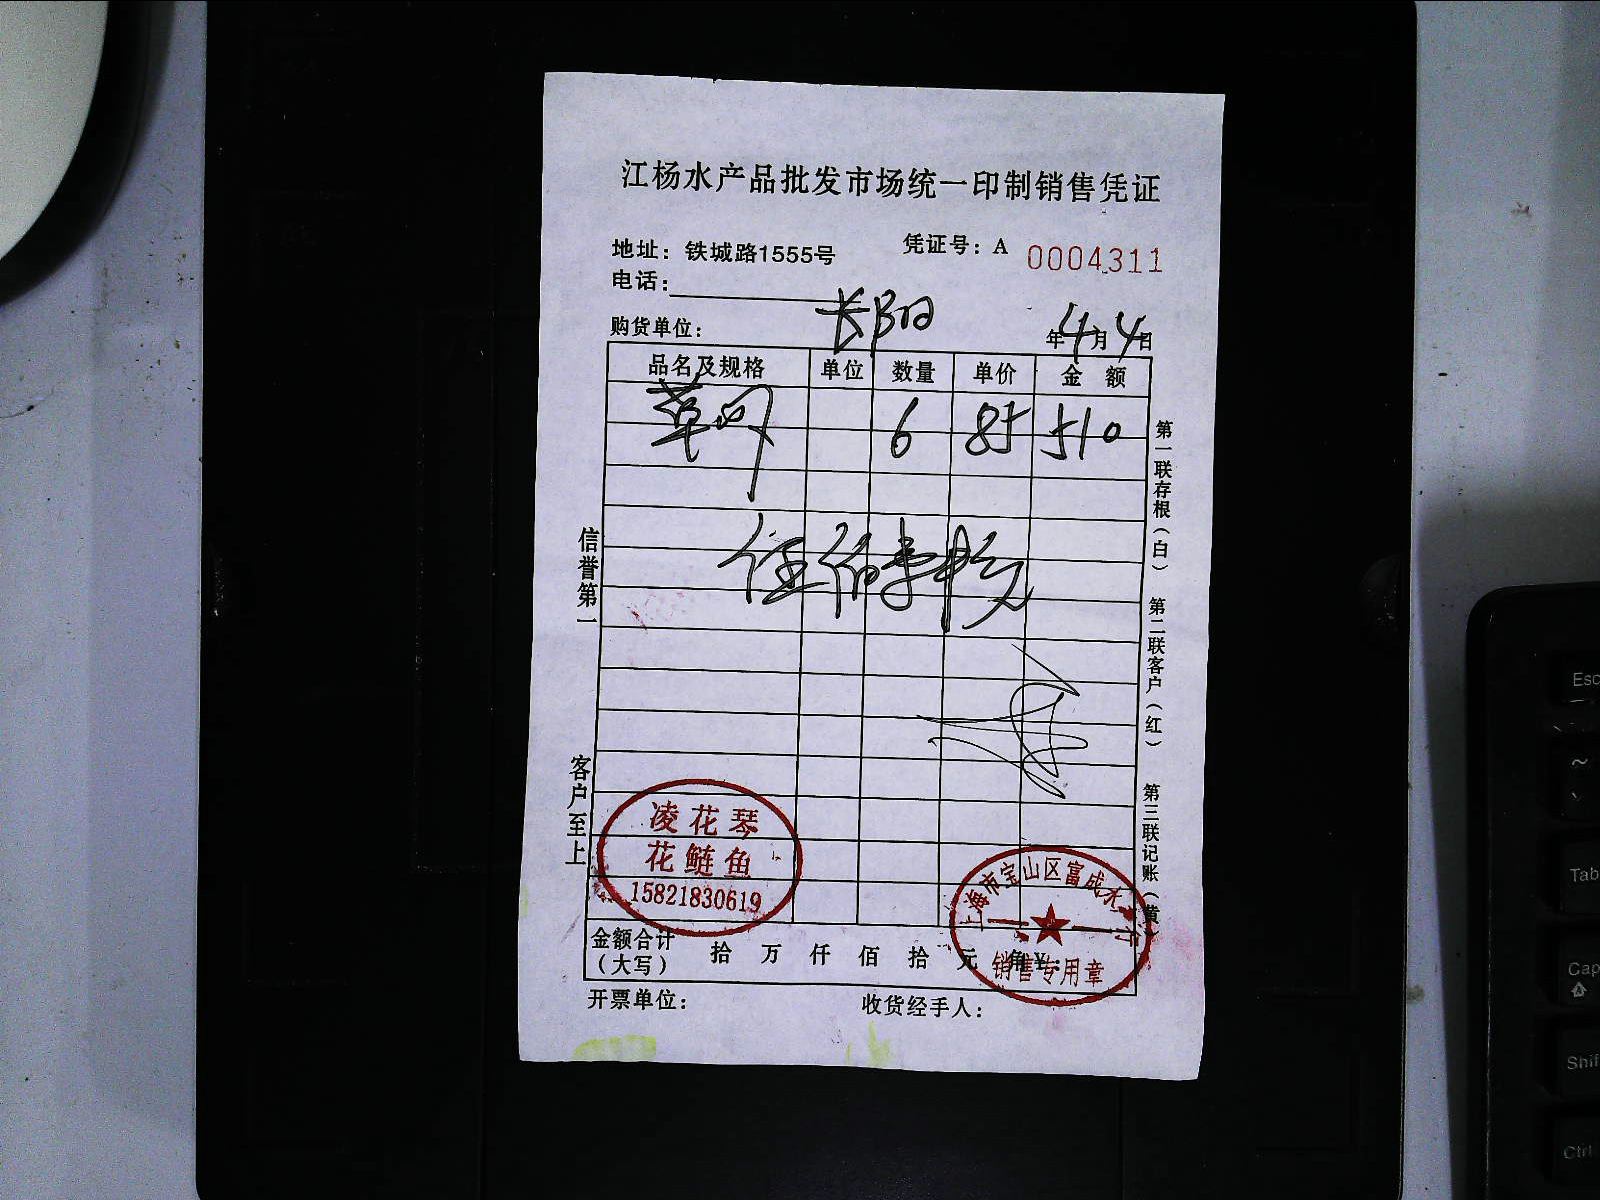 江杨水产品批发市场统一印制销售凭证
地址：铁城路1555号
凭证号：A 0004311
电话：
购货单位： 长阳
年4月4日
品名及规格 单位 数量 单价 金额
草 6 85 510
伍佰
信誉第一
客户至上
第一联存根（白） 第二联客户（红） 第三联记账（黄）
凌花琴
花鲢鱼
15821830619
上海市宝山区富成水 行
销售专用章
金额合计（大写） 拾 万 仟 佰 拾 元 角 ¥：
开票单位： 收货经手人：
Esc
~
Tab
Cap
Shif
Ctrl